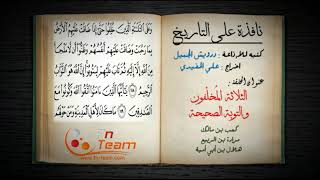 نافذة على التاريخ
كتبه للإذاعة : درويش الجميل
اخراج : علي
عنوان الحلقة :
الثلاثة المخلفون
والتوبة الصحيحة
كعب بن مالك
مرارة بن الربيع
هلال بن أبي أمية
وَعَلَى ٱلثَّلَٰثَةِ ٱلَّذِينَ خُلِّفُوا۟ حَتَّىٰٓ إِذَا ضَاقَتْ عَلَيْهِمُ ٱلْأَرْضُ
بِمَا رَحُبَتْ وَضَاقَتْ عَلَيْهِمْ أَنفُسُهُمْ وَظَنُّوٓا۟ أَن لَّا مَلْجَأَ مِنَ
ٱللَّهِ إِلَّآ إِلَيْهِ ثُمَّ تَابَ عَلَيْهِمْ لِيَتُوبُوٓا۟ إِنَّ ٱللَّهَ هُوَ ٱلتَّوَّابُ
ٱلرَّحِيمُ ١١٨ يَٰٓأَيُّهَا ٱلَّذِينَ ءَامَنُوا۟ ٱتَّقُوا۟ ٱللَّهَ وَكُونُوا۟ مَعَ
ٱلصَّٰدِقِينَ ١١٩ مَا كَانَ لِأَهْلِ ٱلْمَدِينَةِ وَمَنْ حَوْلَهُم
n
Team
www.fn-team.com